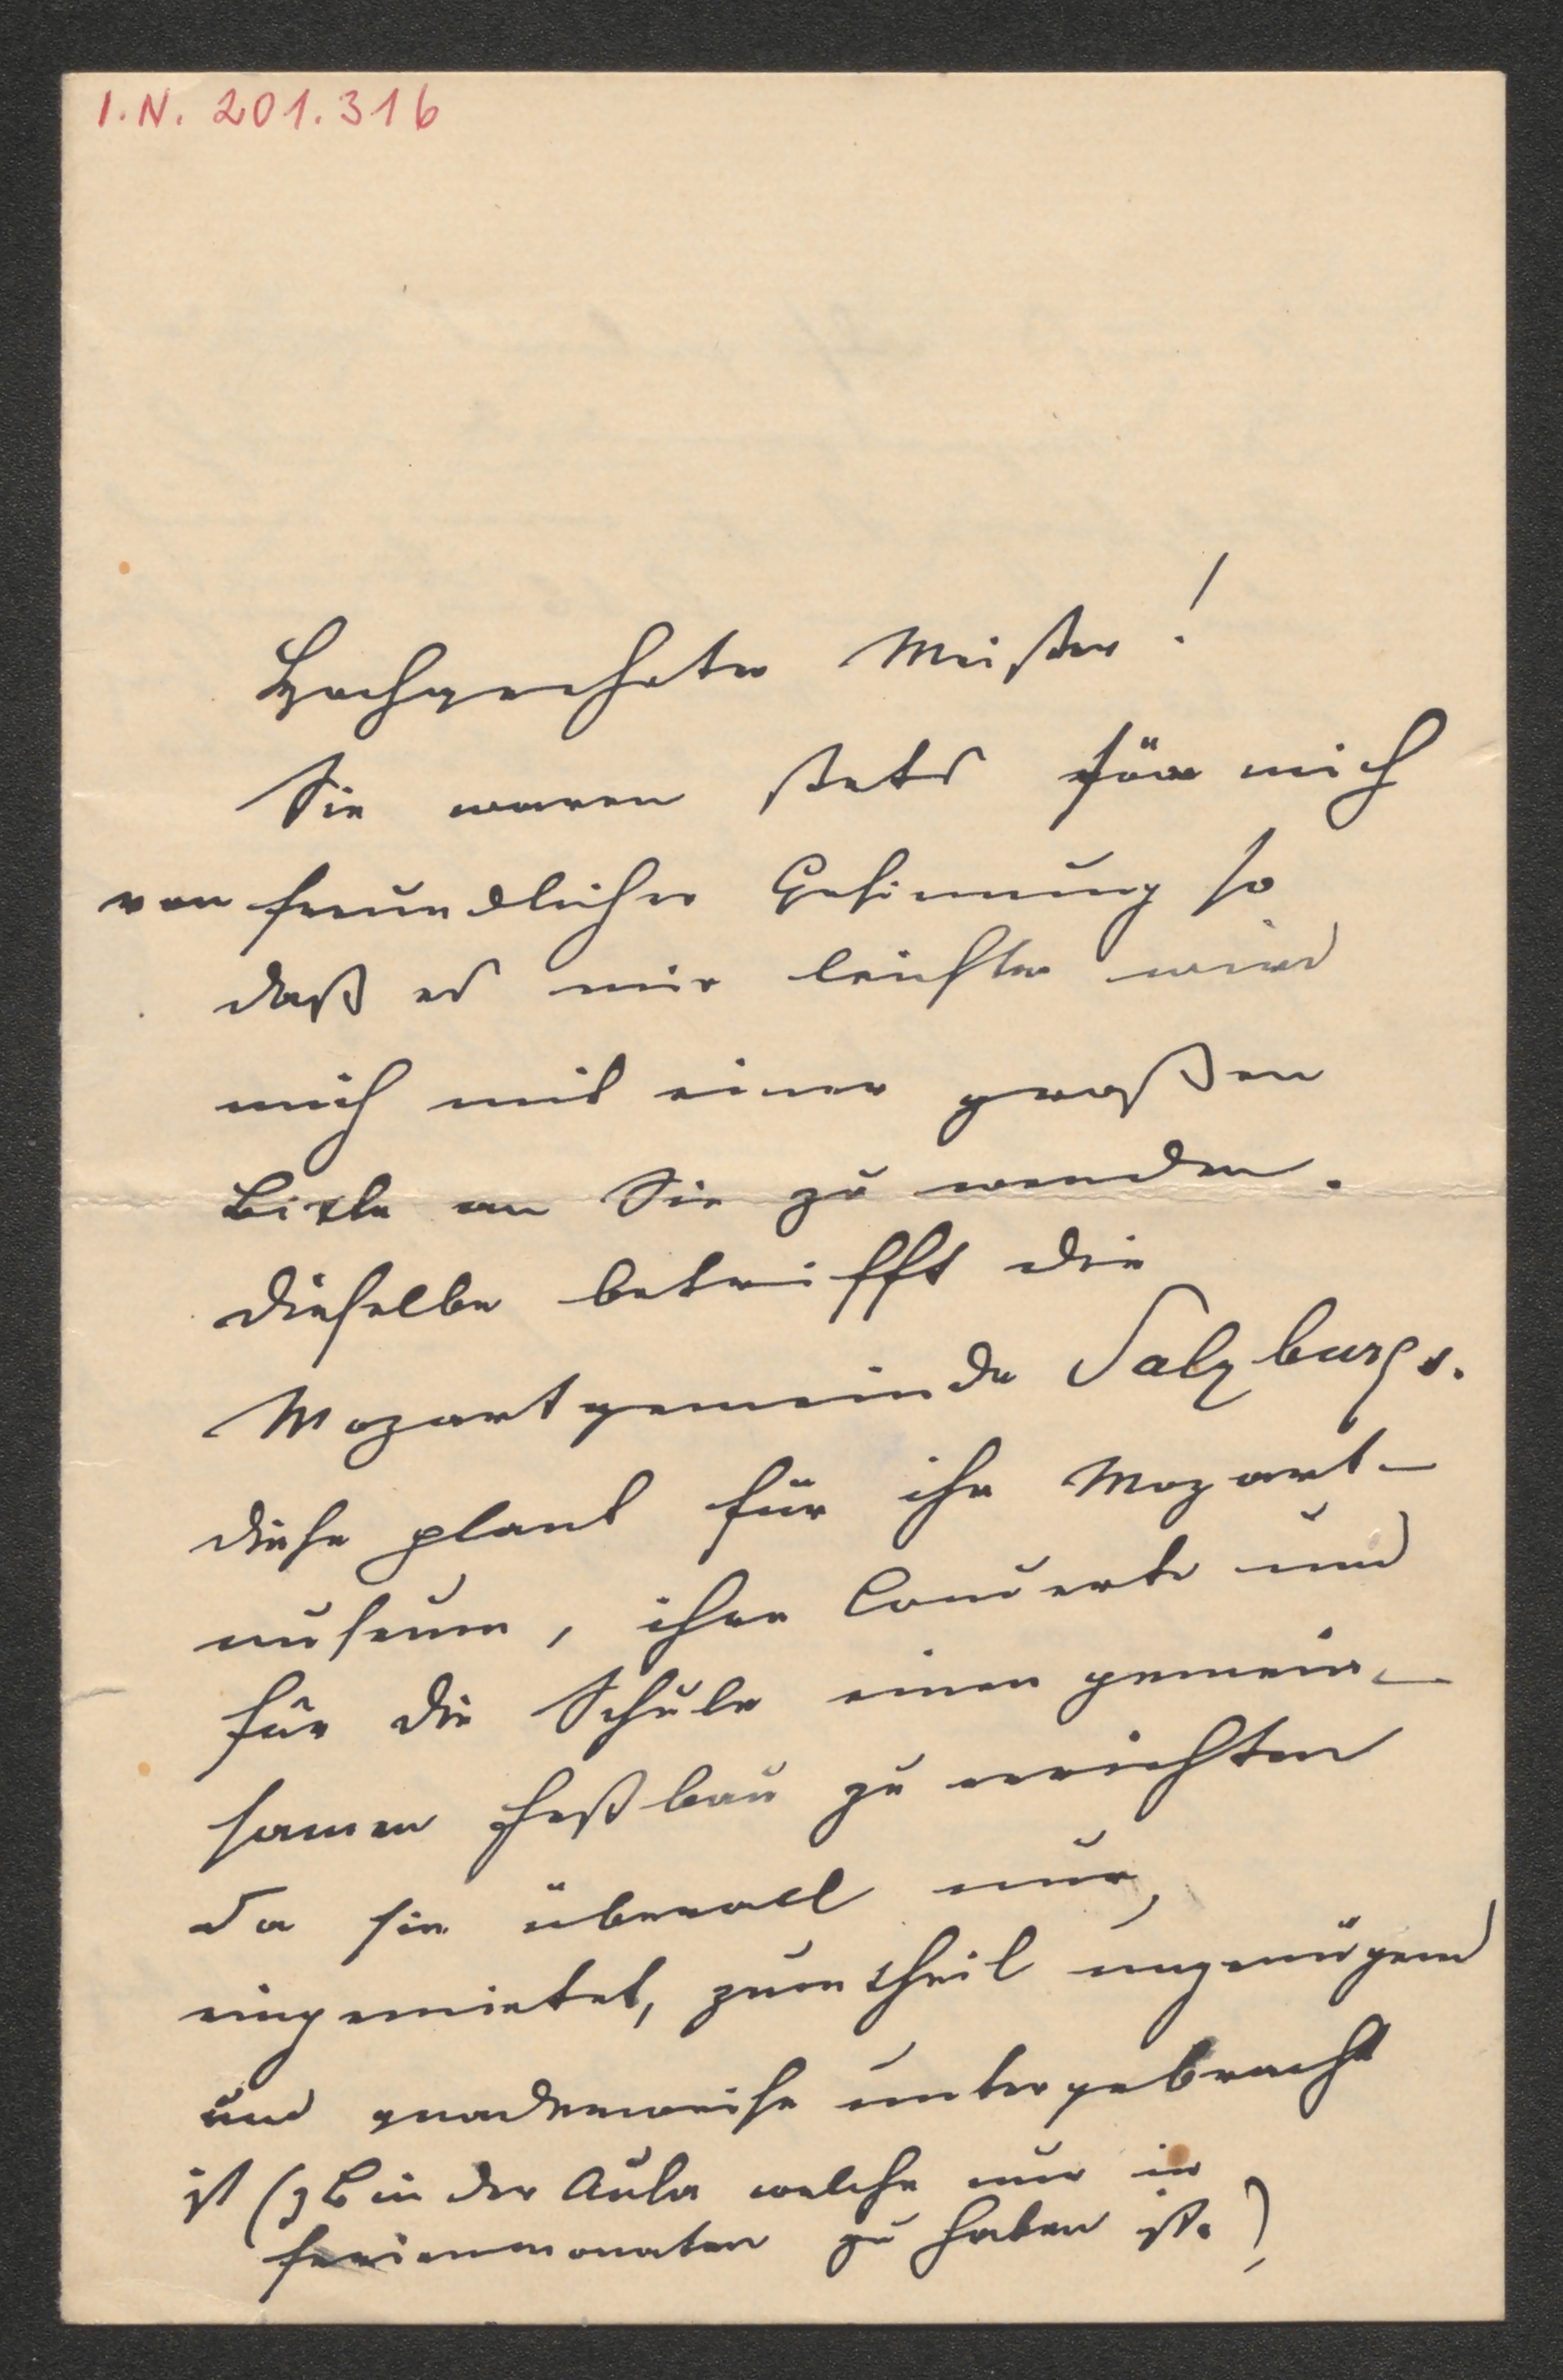 I.N. 201.316
Hochgeehrter Meister!
Sie waren stets für mich
von freundlicher Gesinnung so
daß es mir leichter wird
mich mit einer großen
Bitte an Sie zu wenden.
Dieselbe betrifft die
Mozartgemeinde Salzburgs.
Diese plant für ihr Mozart-
museum, ihre Concerte und
für die Schule einen gemein-
samen Festbau zu errichten
da sie überall nur,
eingemietet, zum theil ungenügend
und gnadenweise untergebracht
ist (z B in der Aula welche nur in
Ferienmonaten zu haben ist.)